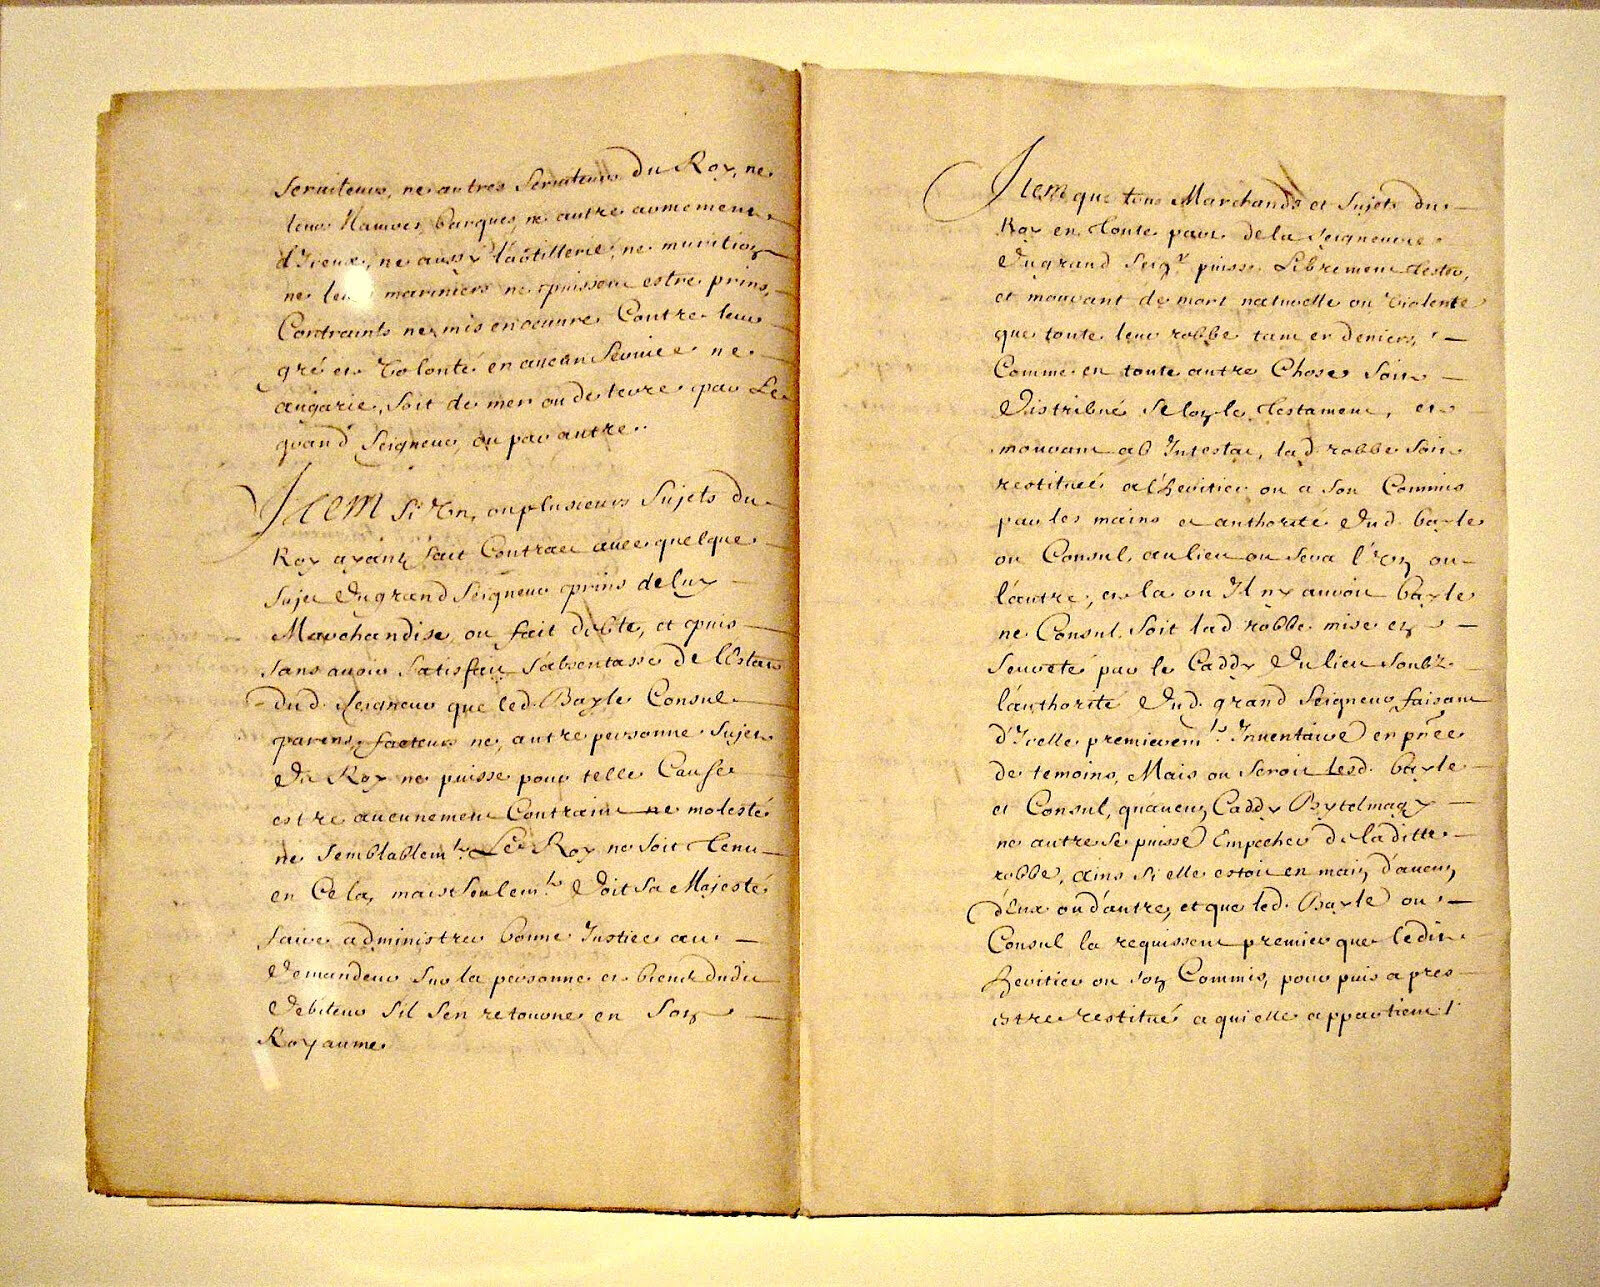 Seruiteurs, ne autres Seruiteurs du Roy, ne
leurs Nauires, barques, ne autre armement
d'Iceux, ne aussy l'artillerie, ne munition
ne mariniers ne puissent estre prins,
Contraints ne mis en oeuure Contre leur
gré et Volonté en aucun Seruice ne
angarie, Soit de mer ou de terre par Le
grand Seigneur, ou par autre.
Item Si Vn, ou plusieurs Sujets du
Roy ayant fait Contract auec quelque
Sujet du grand Seigneur prins de luy
Marchandise, ou fait debte, et puis
Sans auoir Satisfait S'absentasse de l'Estat
dud. Seigneur que led. Bayle Consul
parens, facteurs ne, autre personne Sujet
du Roy ne puisse pour telle Cause
estre aucunement Contraint ne molesté
ne Semblablemt. Le Roy ne Soit tenu
en Cela, mais Seulemt. doit Sa Majesté
faire administrer bonne Justice au
demandeur Sur la personne et biens dudit
debiteur S'il S'en retourne en Son
Royaume
Item que tous Marchands et Sujets du
Roy en toute part de la Seigneurie
du grand Seigr. puisse Librement tester,
et mourant de mort naturelle ou Violente
que toute leur robbe tant en deniers,
Comme en toute autre Chose Soit
distribué Selon le testament, et
mourant ab Intestat, lad. robbe Soit
restituée a l'heritier ou a Son Commis
par les mains et authorité dud. bayle
ou Consul, au lieu ou Sera l'Vn ou
l'autre, et la ou Il n'y auroit bayle
ne Consul, Soit lad. robbe mise en
Seureté par le Caddy du lieu Soubz
l'authorité dud. grand Seigneur faisant
d'Icelle premieremt. Inuentaire en pñce
de temoins, Mais ou Seroit lesd. bayle
et Consul, qu'aucun Caddy Bytelmagy
ne autre Se puisse Empecher de laditte
robbe, ains Si elle estoit en main d'aucun
d'Eux ou d'autre, et que led. Bayle ou
Consul la requissent premier que ledit
heritier ou Son Commis, pour puis apres
estre restitué a qui elle appartient